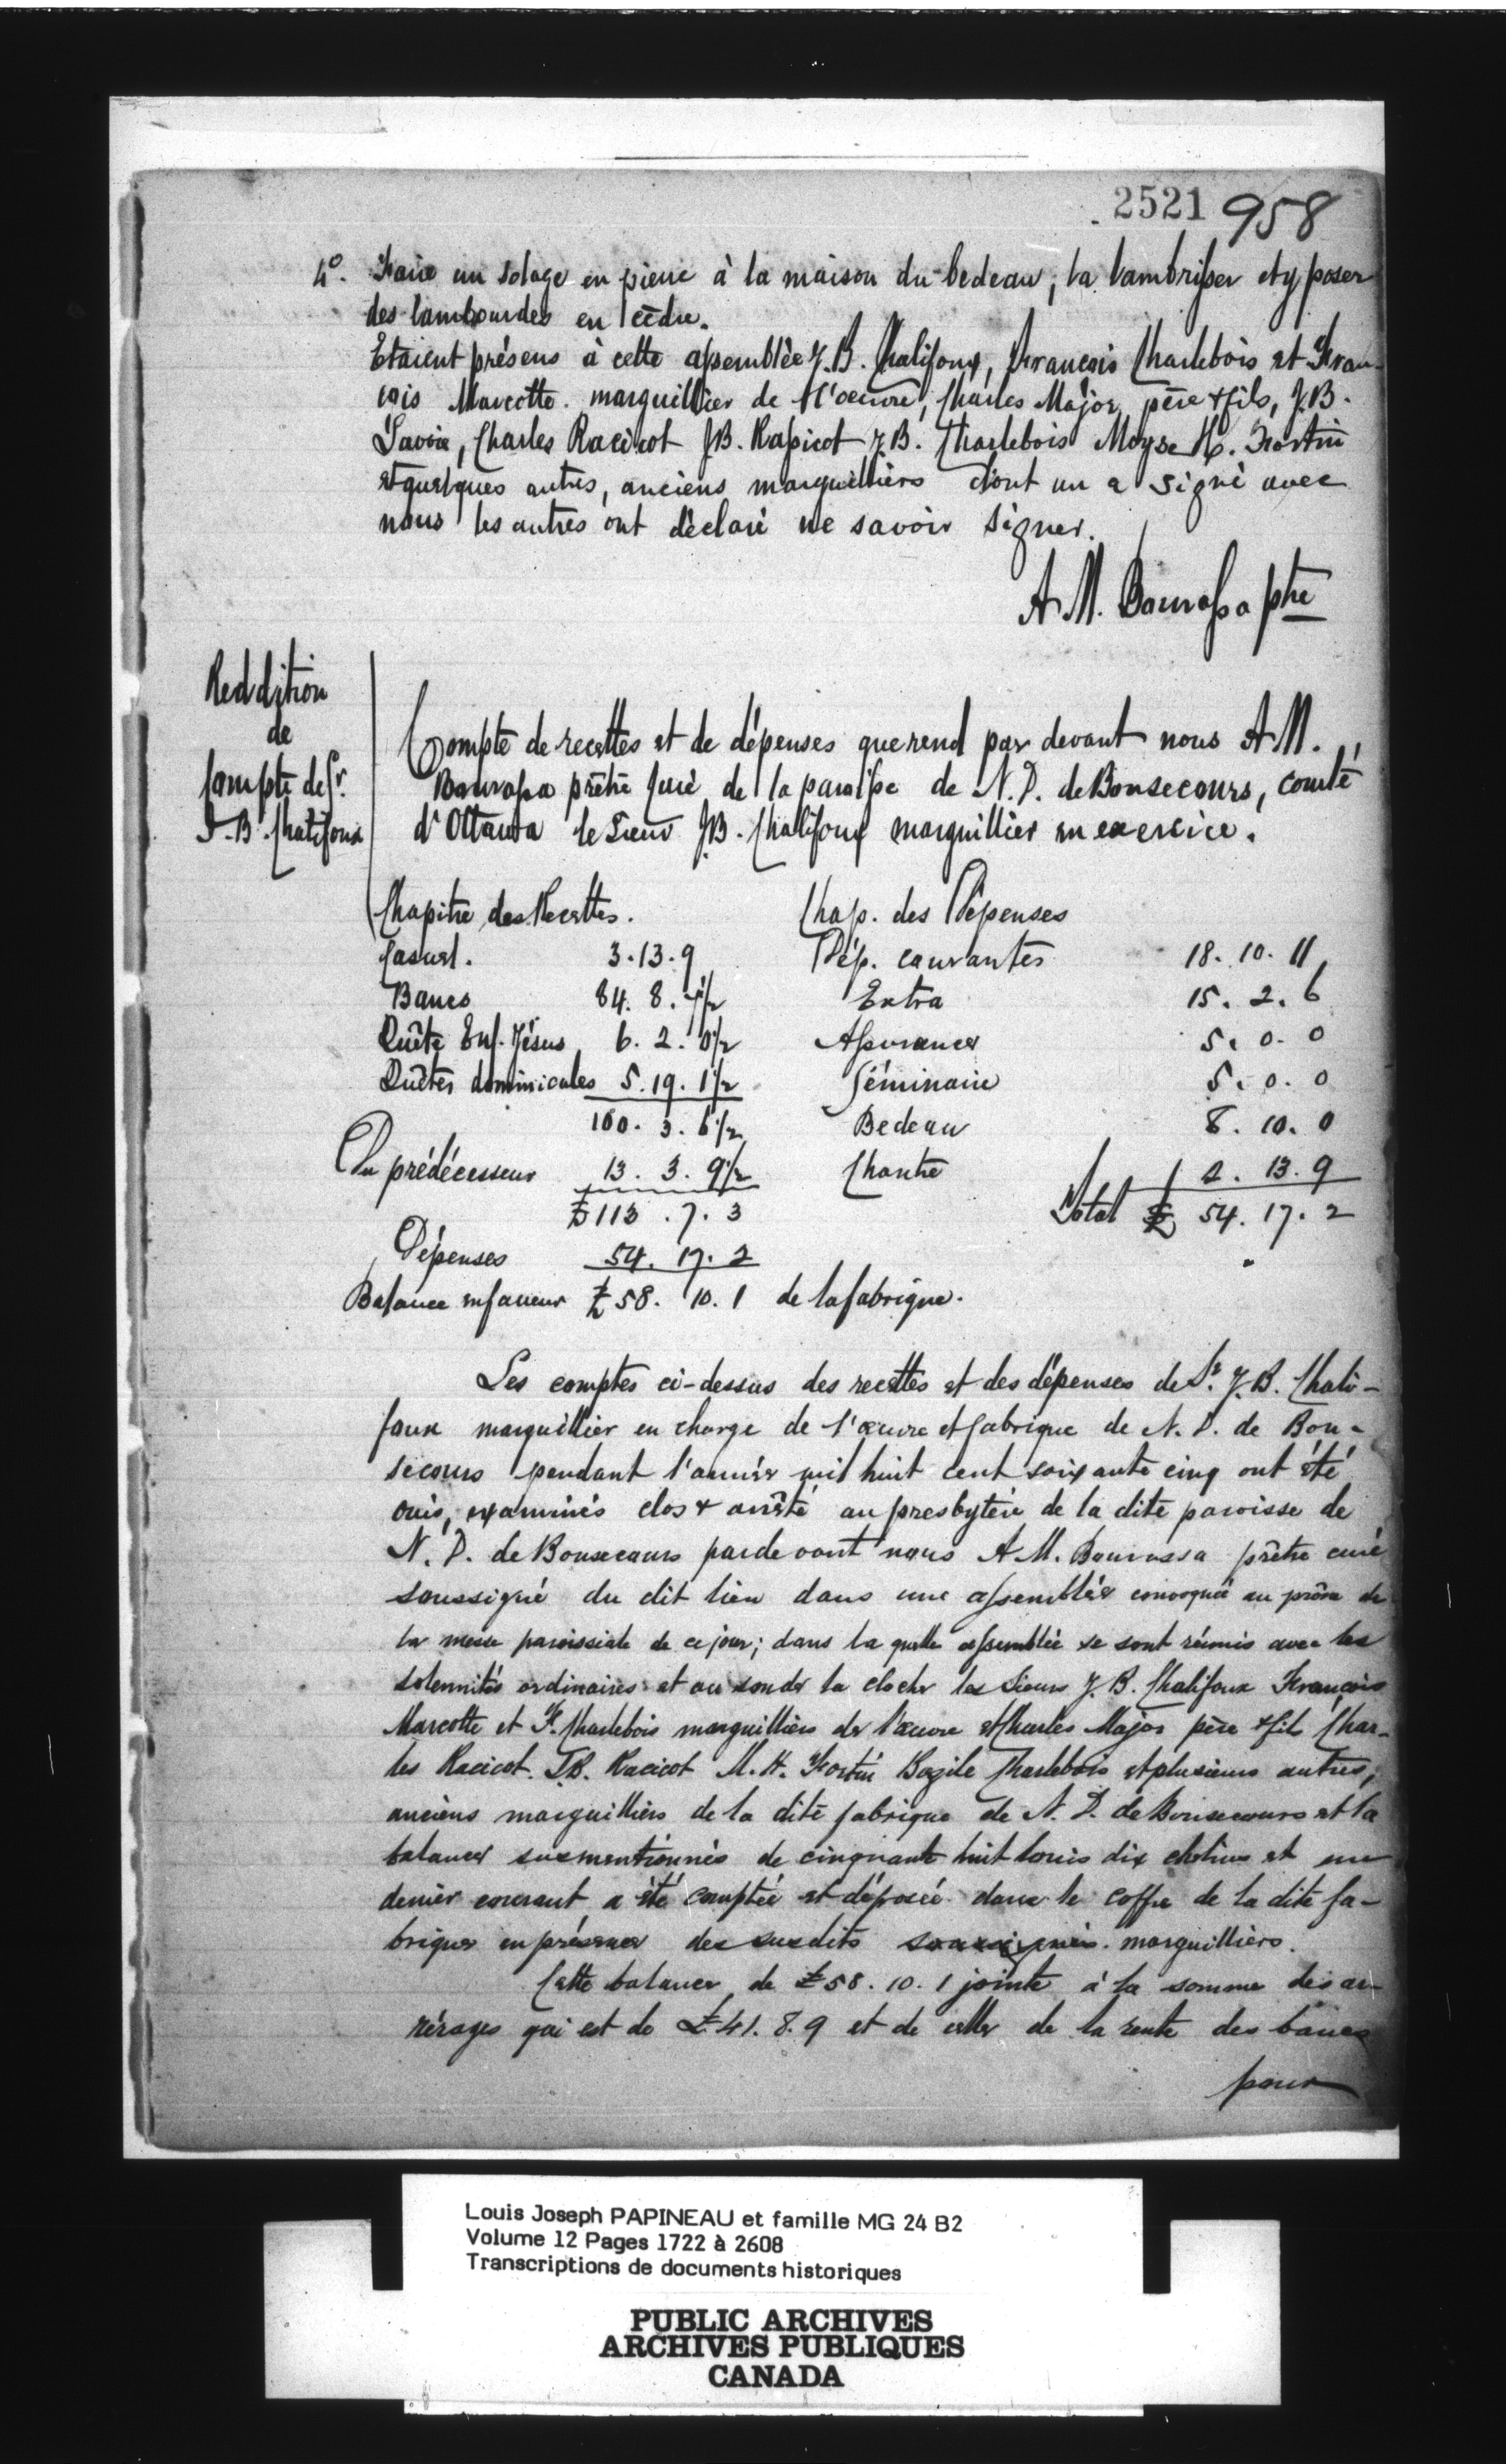 2521 958
4º. Faire un solage en pierre à la maison du bedeau, la lambrisser et y poser
des lambourdes en cèdre.
Etaient présens à cette assemblée J.B. Chalifoux, François Charlebois et Fran-
çois Marcotte marguillier de l'oeuvre, Charles Major, père & fils, J.B.
Lavoie, Charles Racicot J.B. Rapicot J.B. Charlebois Moyse H. Fortin
et quelques autres, anciens marguilliers dont un a signé avec
nous les autres ont déclaré ne savoir signer.
A. M. Bourassa ptre
Reddition
de
Compte de Sr.
J.-B. Chalifoux
Compte de recettes et de dépenses que rend par devant nous A.M.
Bourassa prêtre curé de la paroisse de N. D. de Bonsecours, comté
d'Ottawa le Sieur J.B. Chalifoux marguillier en exercice.
Chapitre des Recettes. Chap. des Dépenses
Casuel. 3.13.9 Dép. courantes 18. 10. 11
Bancs 84. 8. 7½ Extra 15. 2. 6
Quête Enf. Jésus 6. 2. 0½ Assurances 5. 0. 0
Quêtes dominicales 5.19. 1½ Séminaire 5. 0. 0
100. 3. 6½ Bedeau 8. 10. 0
Du prédécesseur 13. 3. 9½ Chantre 2. 13. 9
£113 . 7. 3 Total £ 54. 17. 2
Dépenses 54. 17. 2
Balance en faveur £ 58. 10. 1 de la fabrique.
Les comptes ci-dessus des recettes et des dépenses de Sr. J.B. Chali-
foux marguillier en charge de l'œuvre et fabrique de N. D. de Bon-
secours pendant l'année mil huit cent soixante cinq ont été
ouis, examinés clos & arrêté au presbytère de la dite paroisse de
N. D. de Bonsecours pardevant nous A M. Bourassa prêtre curé
soussigné du dit lieu dans une assemblée convoquée au prône de
la messe paroissiale de ce jour; dans la quelle assemblée se sont réunis avec les
solennités ordinaires et au son de la cloche les Sieurs J. B. Chalifoux François
Marcotte et F. Charlebois marguilliers de l'œuvre et Charles Major père & fils Char-
les Racicot. J.B. Racicot M. H. Fortin Bazile Charlebois et plusieurs autres,
anciens marguilliers de la dite fabrique de N. D. de Bonsecours et la
balance susmentionnés de cinquante huit louis dix chelins et un
denier courant a été comptée et déposée dans le coffre de la dite fa-
brique en présence des susdits soussignés marguilliers.
Cette balance de £58. 10. 1 jointe à la somme des ar-
rérages qui est de £41. 8. 9 et de celle de la rente des bancs
pour
Louis Joseph PAPINEAU et famille MG 24 B2
Volume 12 Pages 1722 à 2608
Transcriptions de documents historiques
PUBLIC ARCHIVES
ARCHIVES PUBLIQUES
CANADA